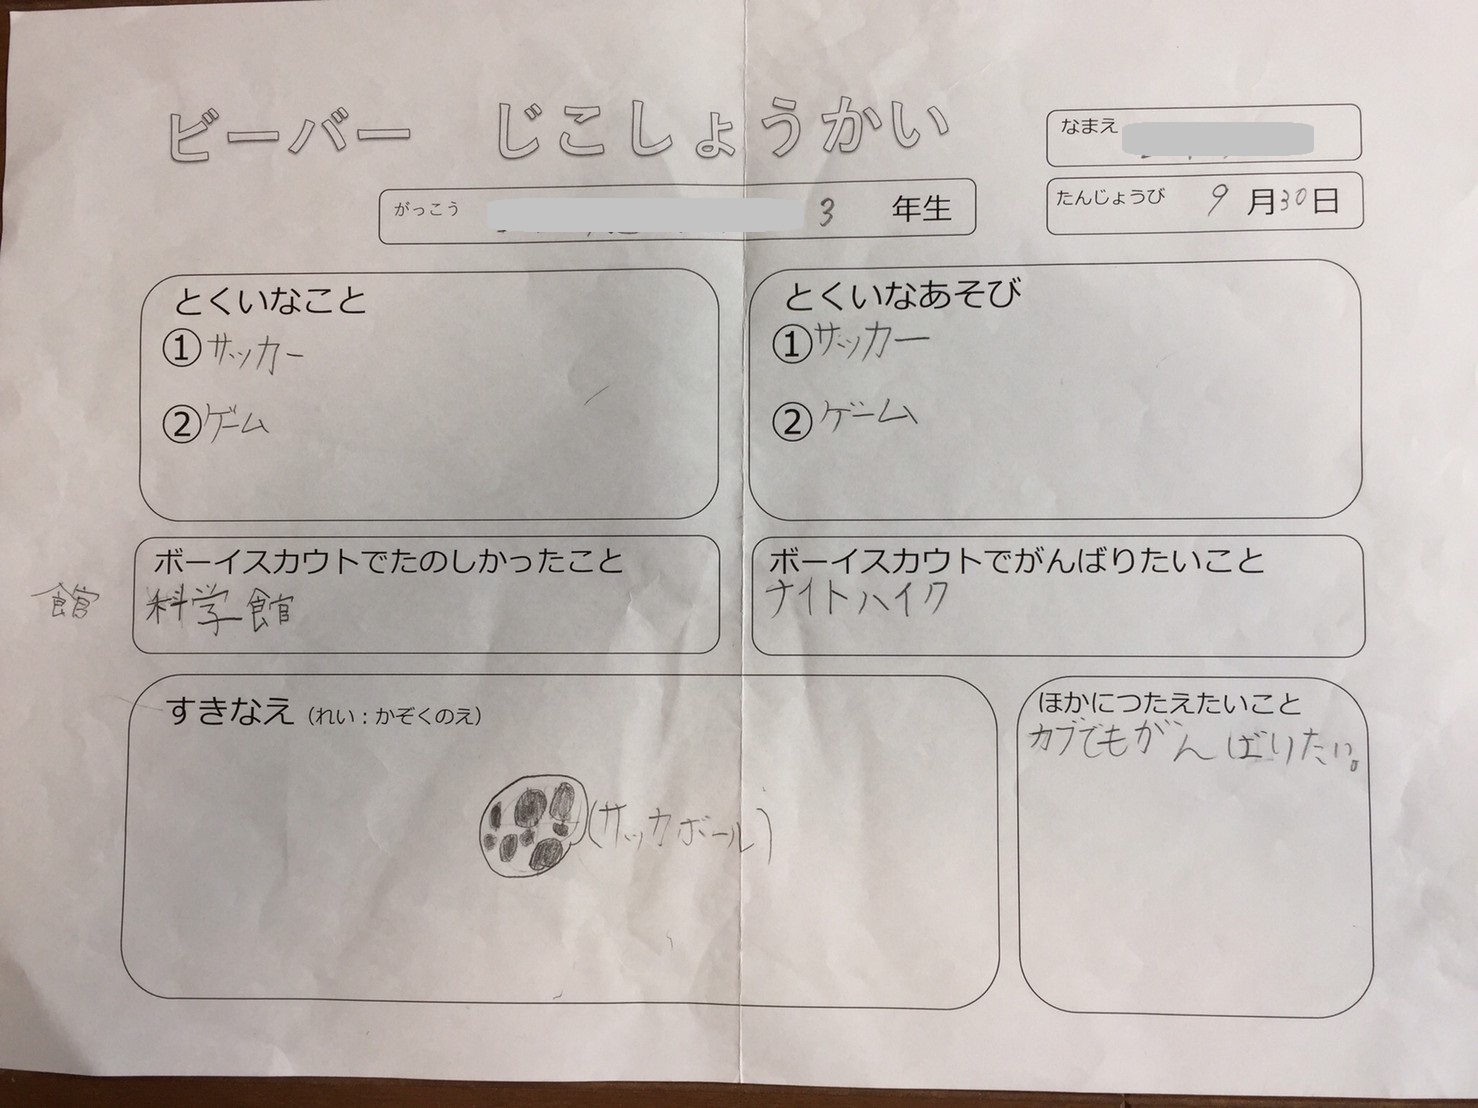 ビーバー じこしょうかい
なまえ
がっこう 3 年生
たんじょうび 9 月 30 日
とくいなこと
①サッカー
②ゲーム
とくいなあそび
①サッカー
②ゲーム
ボーイスカウトでたのしかったこと
館 科学館
ボーイスカウトでがんばりたいこと
ナイトハイク
すきなえ(れい:かぞくのえ)
(サッカボール)
ほかにつたえたいこと
カブでもがんばりたい。